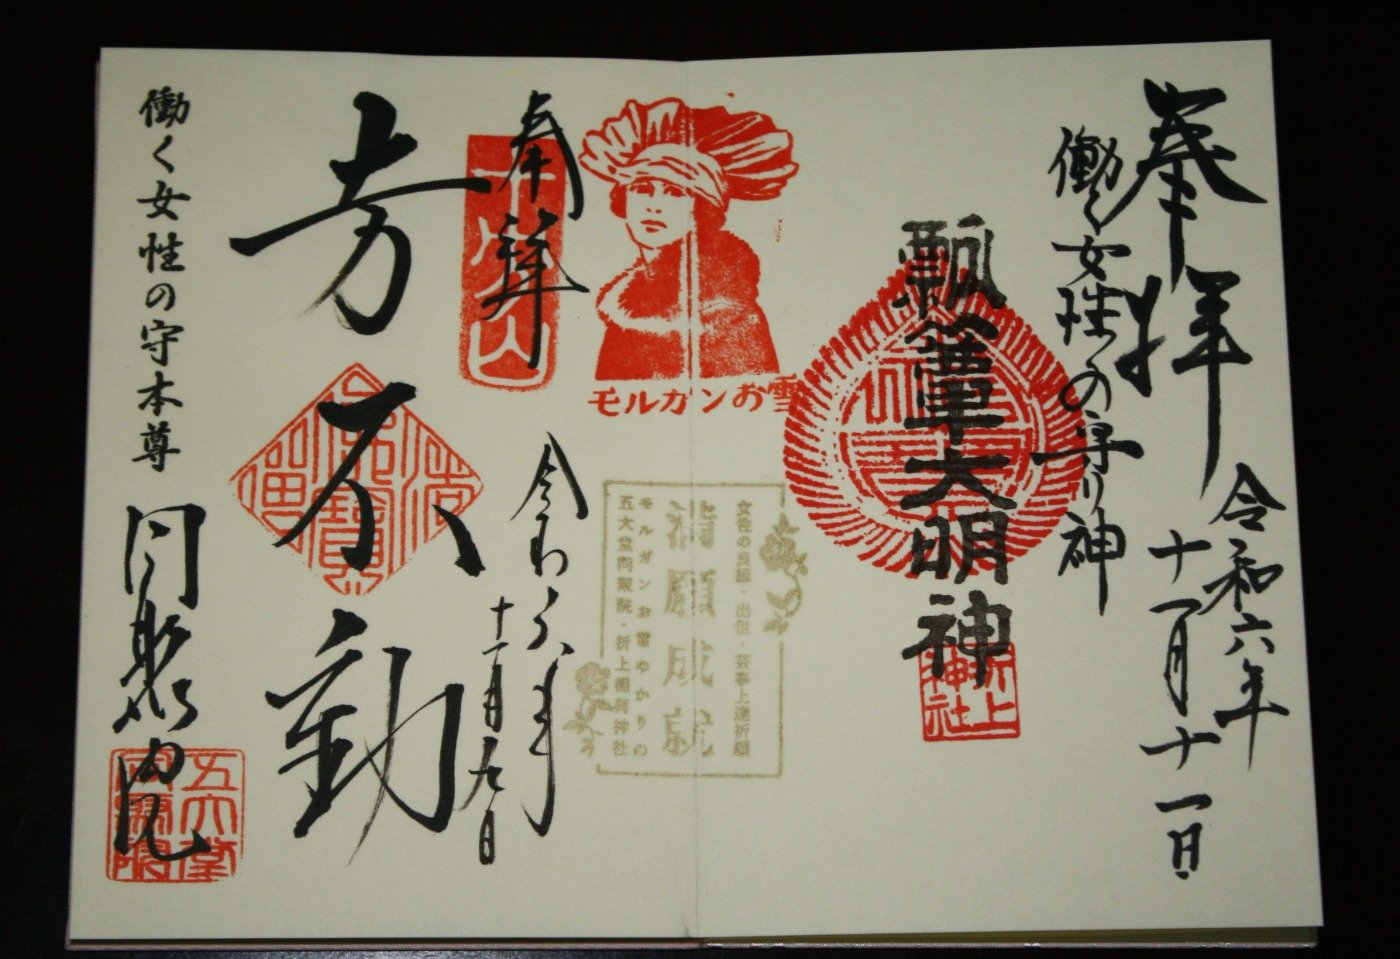 奉拝
令和六年
十一月十一日
働く女性の守り神
瓢箪大明神
折上
神社
モルガンお雪
女性の良縁・出世・芸事上達祈願
満願成就
モルガンお雪ゆかりの
五大堂同聚院・折上稲荷神社
奉拝
令和六年
十一月九日
不動
働く女性の守本尊
同聚院
五大堂
同聚院